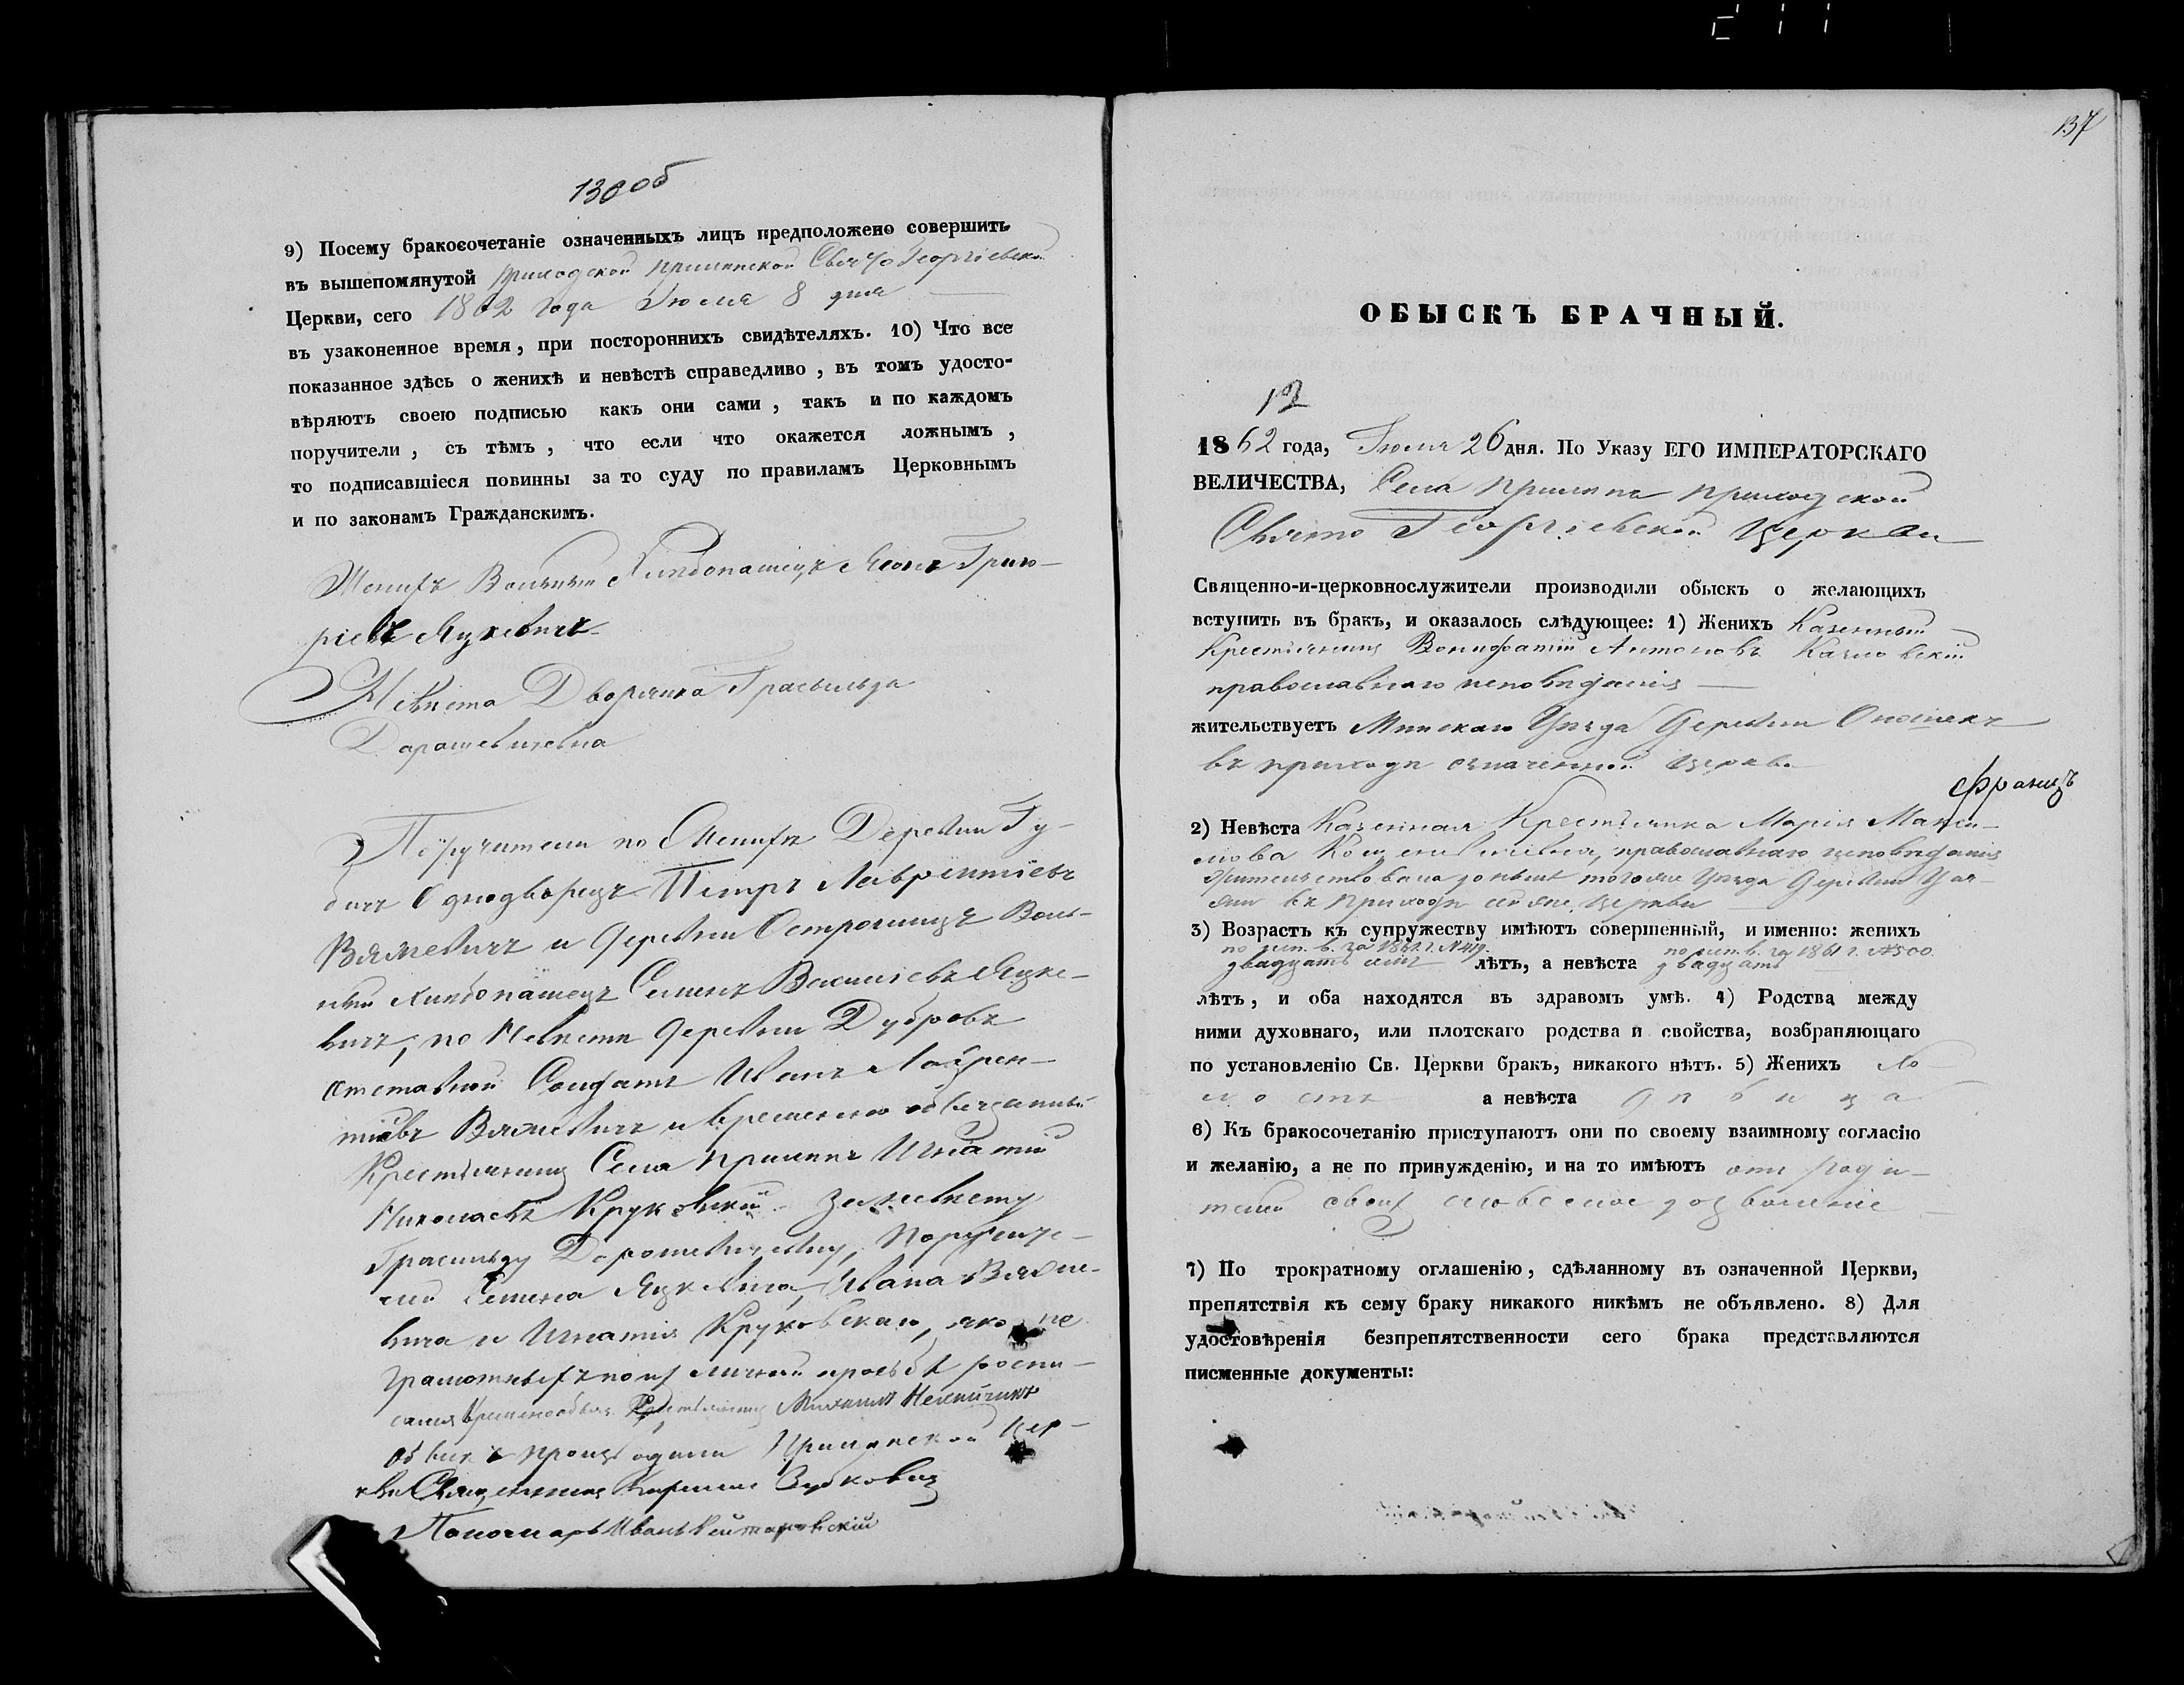 130 об
9) Посему бракосочетаніе означенныхъ лицъ предположено совершить
въ вышепомянутой приходской Прилепской Свято Георгіевской
Церкви, сего 1862 года Іюля 8 дня
въ узаконенное время, при постороннихъ свидѣтеляхъ. 10) Что все
показанное здѣсь о женихѣ и невѣстѣ справедливо, въ томъ удосто-
вѣряютъ своею подписью какъ они сами, такъ и по каждомъ
поручители, съ тѣмъ, что если что окажется ложнымъ,
то подписавшіеся повинны за то суду по правиламъ Церковнымъ
и по законамъ Гражданскимъ.
Женихъ Вольный Хлѣбопашецъ Григо-
ріевъ Яцкевичъ
Невѣста Дворянка
Дарашевичевна
Поручители по Женихѣ Деревни Гу-
бичъ Однодворецъ Петръ Лаврентіевъ
Вяжевичъ и деревни Острошицъ Воль-
ный Хлѣбопашецъ Семенъ Васильевъ Яцке-
вичъ, по Невѣстѣ деревни Дубровъ
отставной Солдатъ Иванъ Лаврен-
тіевъ Вяжевичъ и временно обязанный
Крестьянинъ Села Прилепъ Игнатій
Николаевъ Круковскій. За Невѣсту
Дорошевичевну, Поручите-
лей Семена Яцкевича, Ивана Вяже-
вича и Игнатія Круковскаго, яко не
грамотныхъ по ихъ личной просьбѣ роспи-
сался Крестьянинъ Михаилъ
Обыскъ производили Прилепской Цер-
кви Священникъ
Пономарь Иванъ
137
ОБЫСКЪ БРАЧНЫЙ.
12
1862 года, Іюля 26 дня. По Указу ЕГО ИМПЕРАТОРСКАГО
ВЕЛИЧЕСТВА, Села Прилепъ приходской
Свято Георгіевской Церкви
Священно-и-церковнослужители производили обыскъ о желающихъ
вступить въ бракъ, и оказалось слѣдующее: 1) Женихъ Казенный
Крестьянинъ Вонифатій Антоновъ
православнаго исповѣданія
жительствуетъ Минскаго Уѣзда Деревни
въ приходѣ означенной церкви
Францъ
2) Невѣста Казенная Крестьянка Марія Макси-
мова православнаго исповѣданія
жительствовала донынѣ тогоже Уѣзда Деревни
въ Приходѣ сей же Церкви
3) Возрастъ къ супружеству имѣютъ совершенный, и именно: женихъ
по исп. в. за 1861 г. № 419. по исп. в. за 1861 г. № 500.
двадцать лѣтъ, а невѣста двадцать
лѣтъ, и оба находятся въ здравомъ умѣ. 4) Родства между
ними духовнаго, или плотскаго родства и свойства, возбраняющаго
по установленію Св. Церкви бракъ, никакого нѣтъ. 5) Женихъ хо-
лостъ а невѣста дѣвица
6) Къ бракосочетанію приступаютъ они по своему взаимному согласію
и желанію, а не по принужденію, и на то имѣютъ отъ роди-
телей своихъ словесное дозволеніе
7) По трократному оглашенію, сдѣланному въ означенной Церкви,
препятствія къ сему браку никакого никѣмъ не объявлено. 8) Для
удостовѣренія безпрепятственности сего брака представляются
писменные документы: